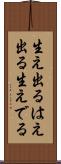 生え出るはえ
出る生えでる